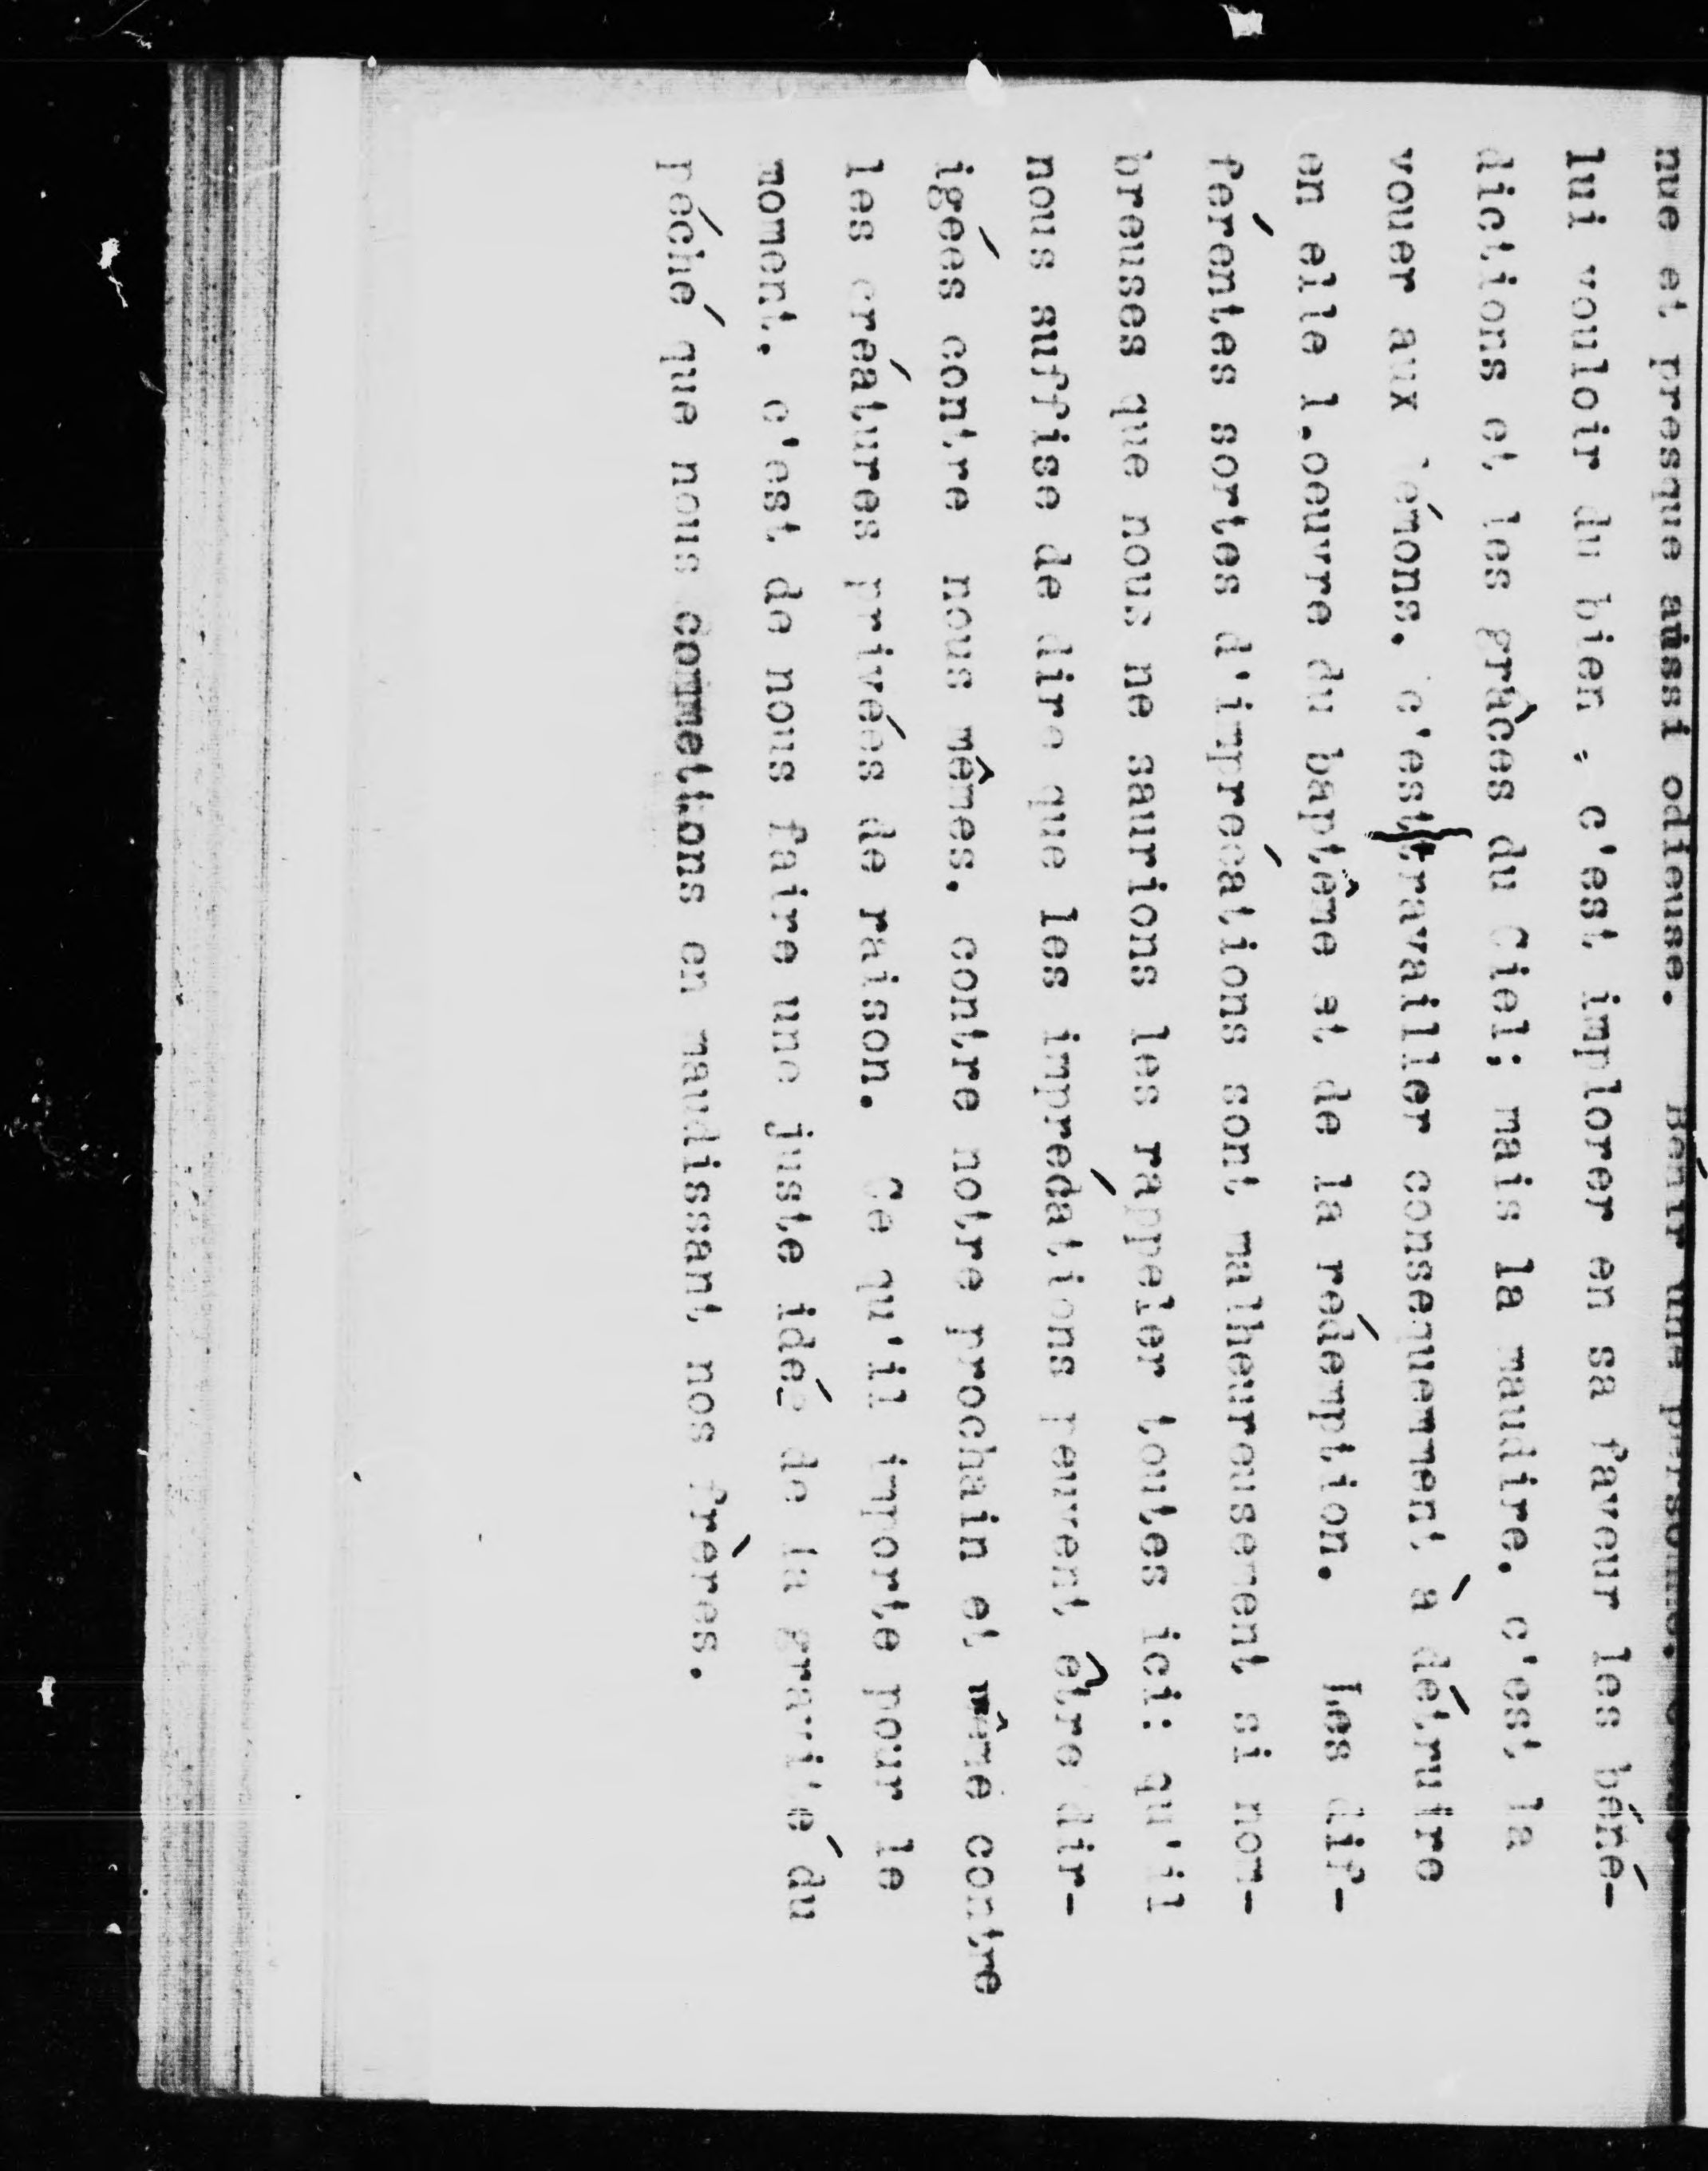 nue et presque aussi odieuse. Bénir une personne.
lui vouloir du bien, c'est implorer en sa faveur les béné-
dictions et les grâces du Ciel; mais la maudire, c'est la
vouer aux démons. c'est travailler consequemment à détruire
en elle l.oeuvre du baptême et de la rédemption. Les dif-
férentes sortes d'imprécations sont malheureusement si nom-
breuses que nous ne saurions les rappeler toutes ici: qu'il
nous suffise de dire que les imprécations peuvent être dir-
igées contre nous mêmes. contre notre prochain et même contre
les créatures privées de raison. Ce qu'il importe pour le
moment. c'est de nous faire une juste idée de la gravité du
péché que nous commettons en maudissant nos frères.